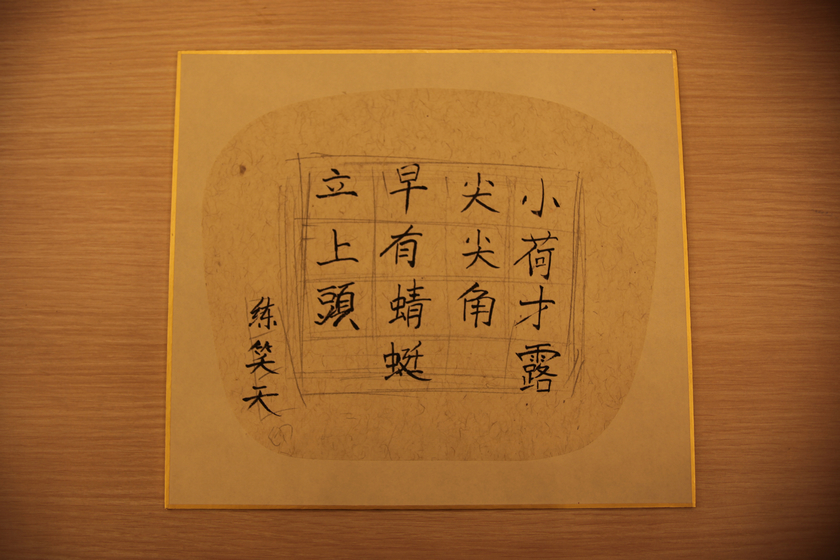 小荷才露
尖尖角
早有蜻蜓
立上頭
练笑天